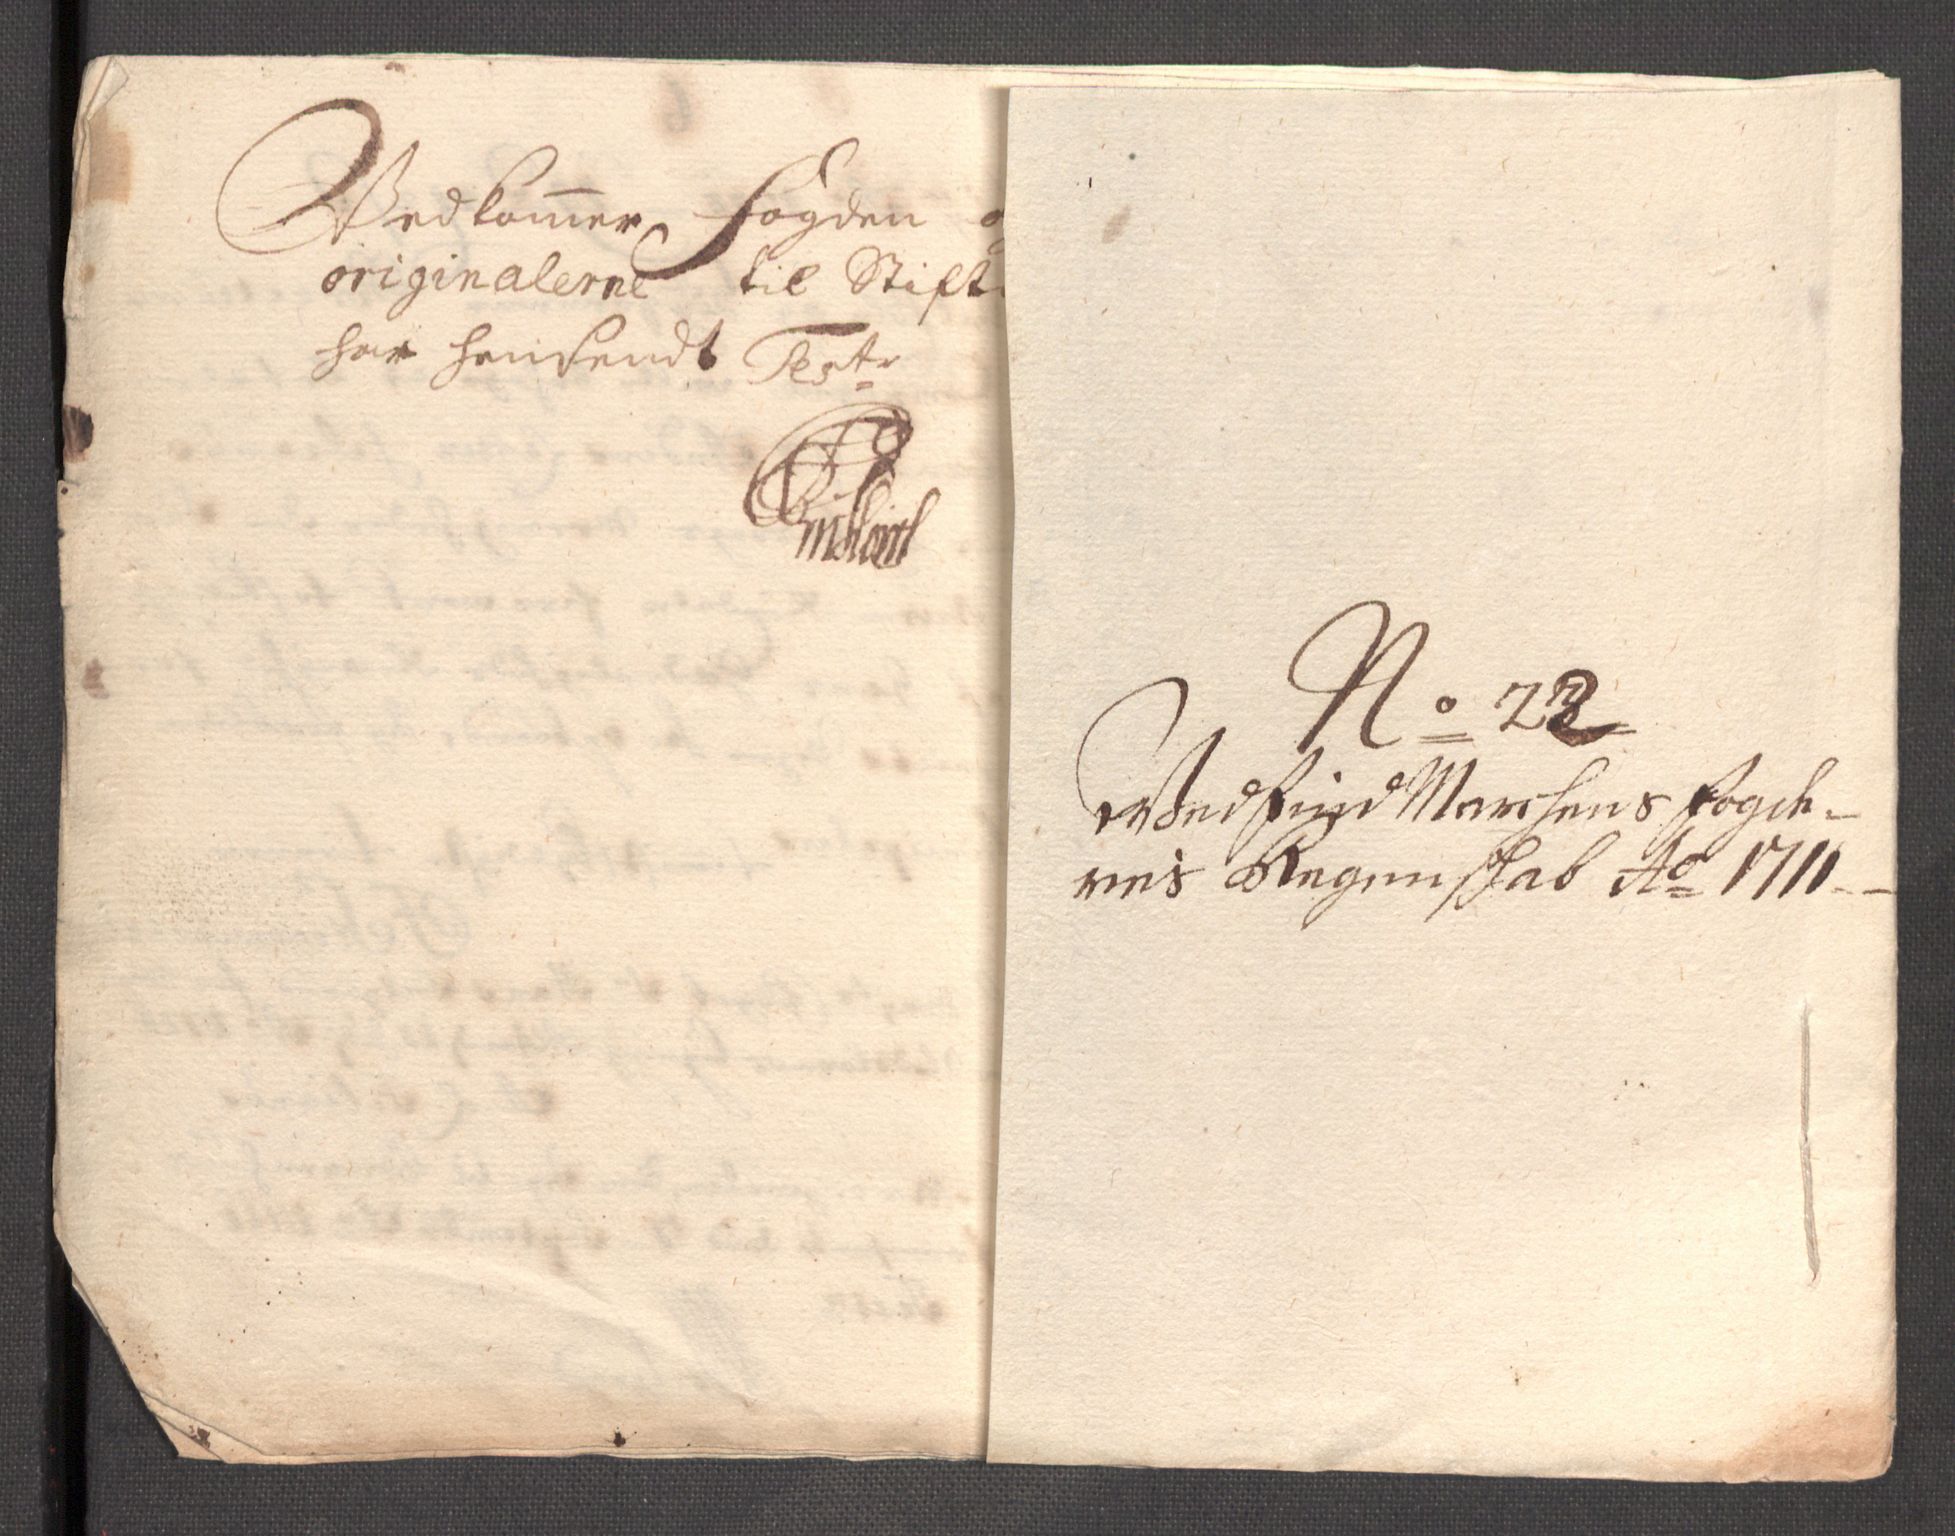 Vedkommer fogden
originalerne til Stift
har hensendt Test.
No 22
Ved find Marchens fogde-
ries Regenschab Ao 1711